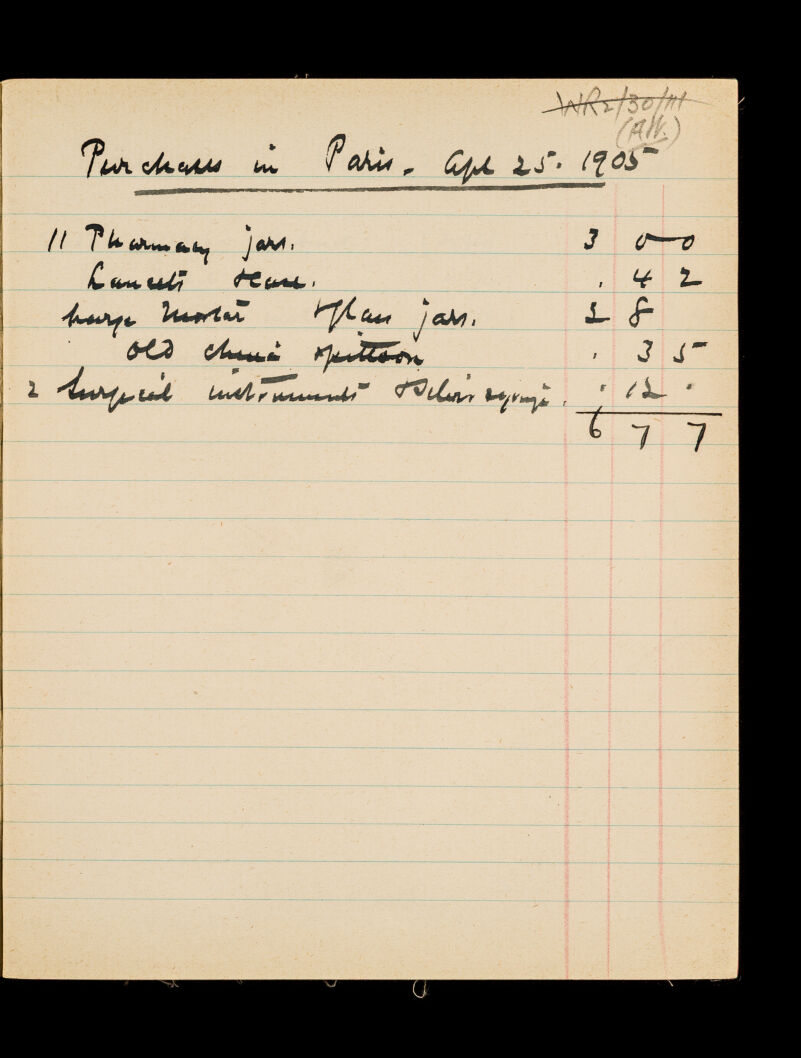 WR2/30/11
(AW.)
Purchases in Paris. Apl 25. 1905
11 Pharmacy jars. 3 0 0
Lancets & case. . 4 2
Large Mortar & glass jars. 2 8
Old china spittoon . 3 5
2 Surgical instruments & silver syringe. . 12 .
6 7 7